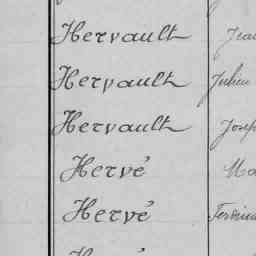 Hervault Jean
Hervault Julien
Hervault Josep
Hervé Ma
Hervé
Hervé